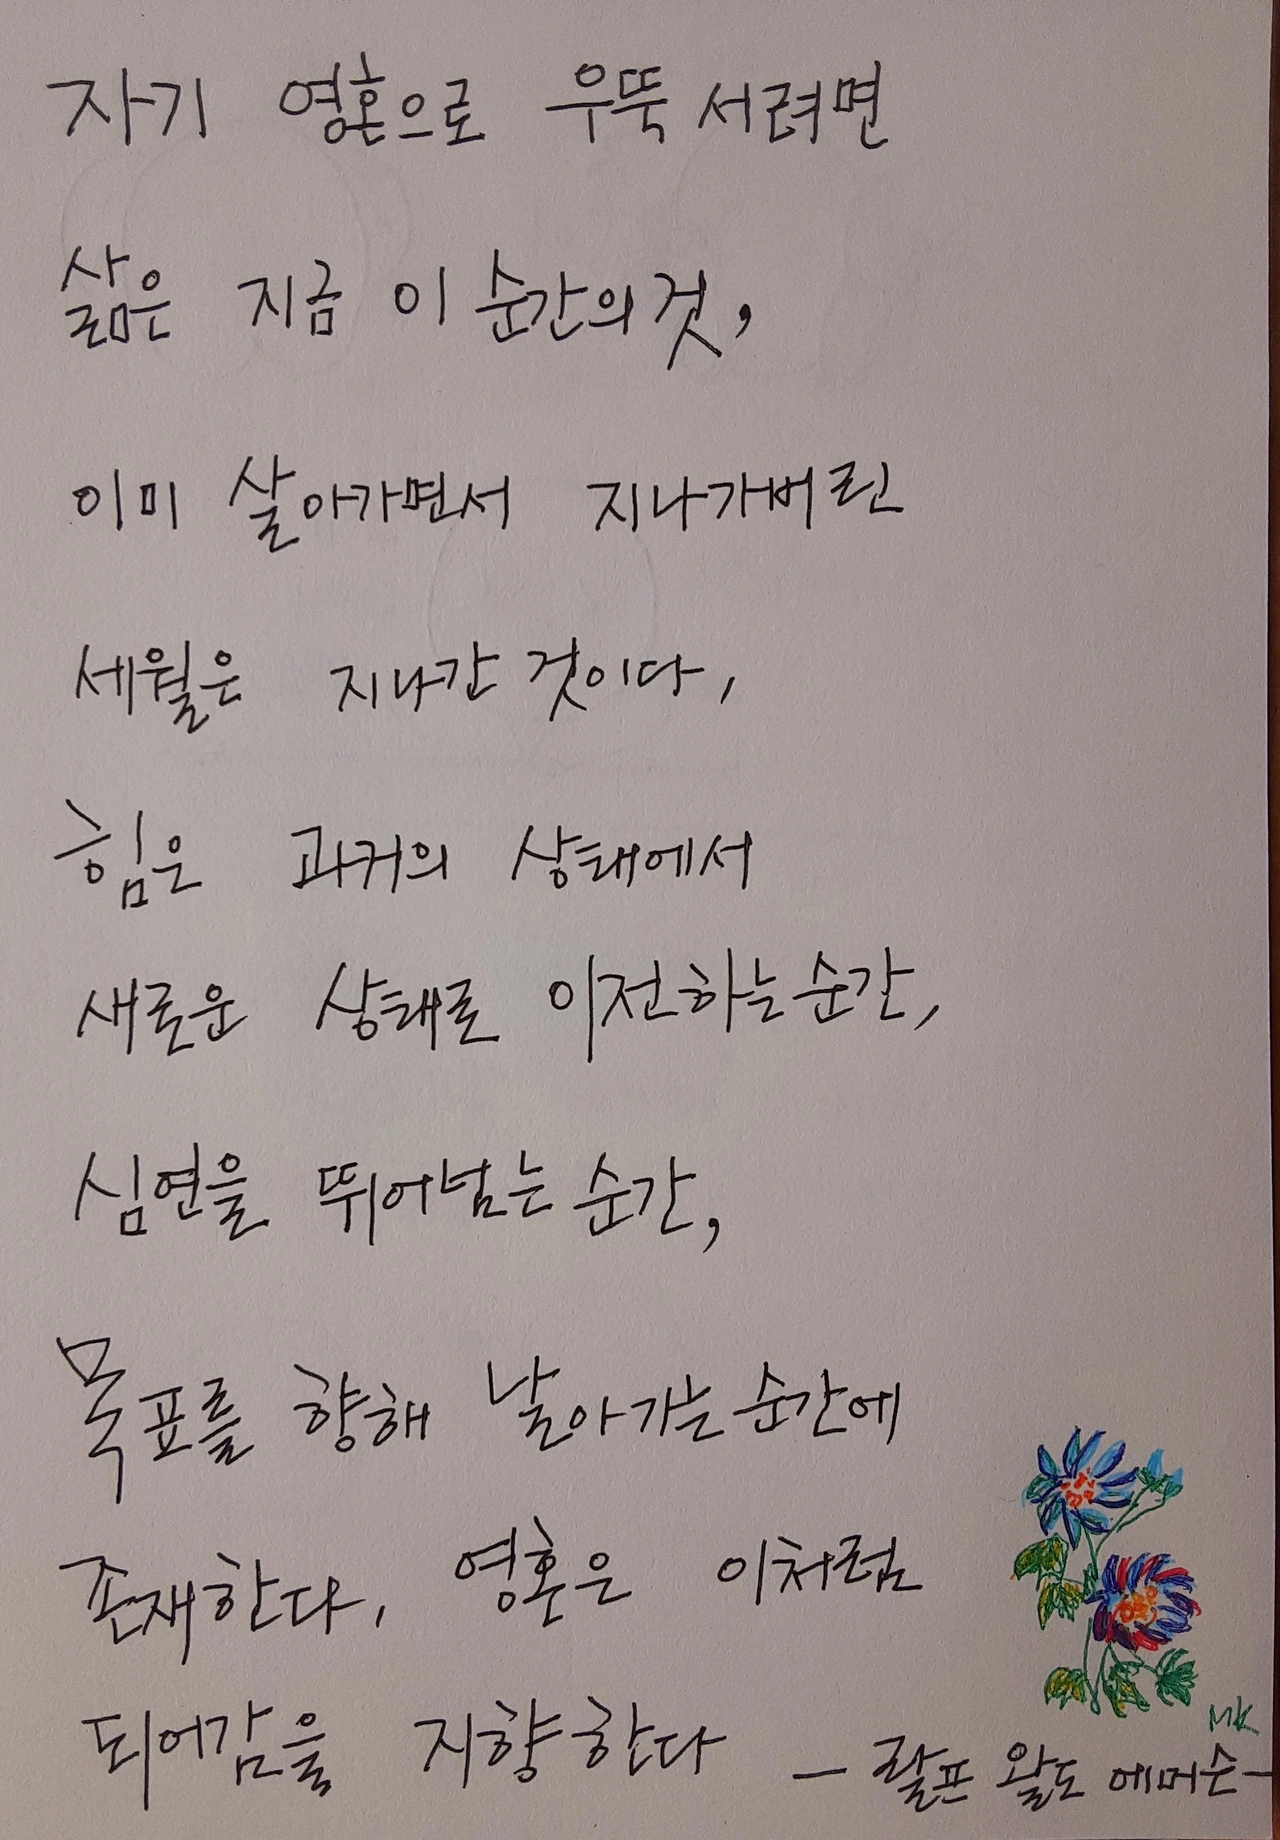 자기 영혼으로 우뚝 서려면
삶은 지금 이 순간의 것,
이미 살아가면서 지나가버린
세월은 지나간 것이다,
힘은 과거의 상태에서
새로운 상태로 이전하는 순간,
심연을 뛰어넘는 순간,
목표를 향해 날아가는 순간에
존재한다, 영혼은 이처럼
되어감을 지향한다
MK
- 랄프 왈도 에머슨 -